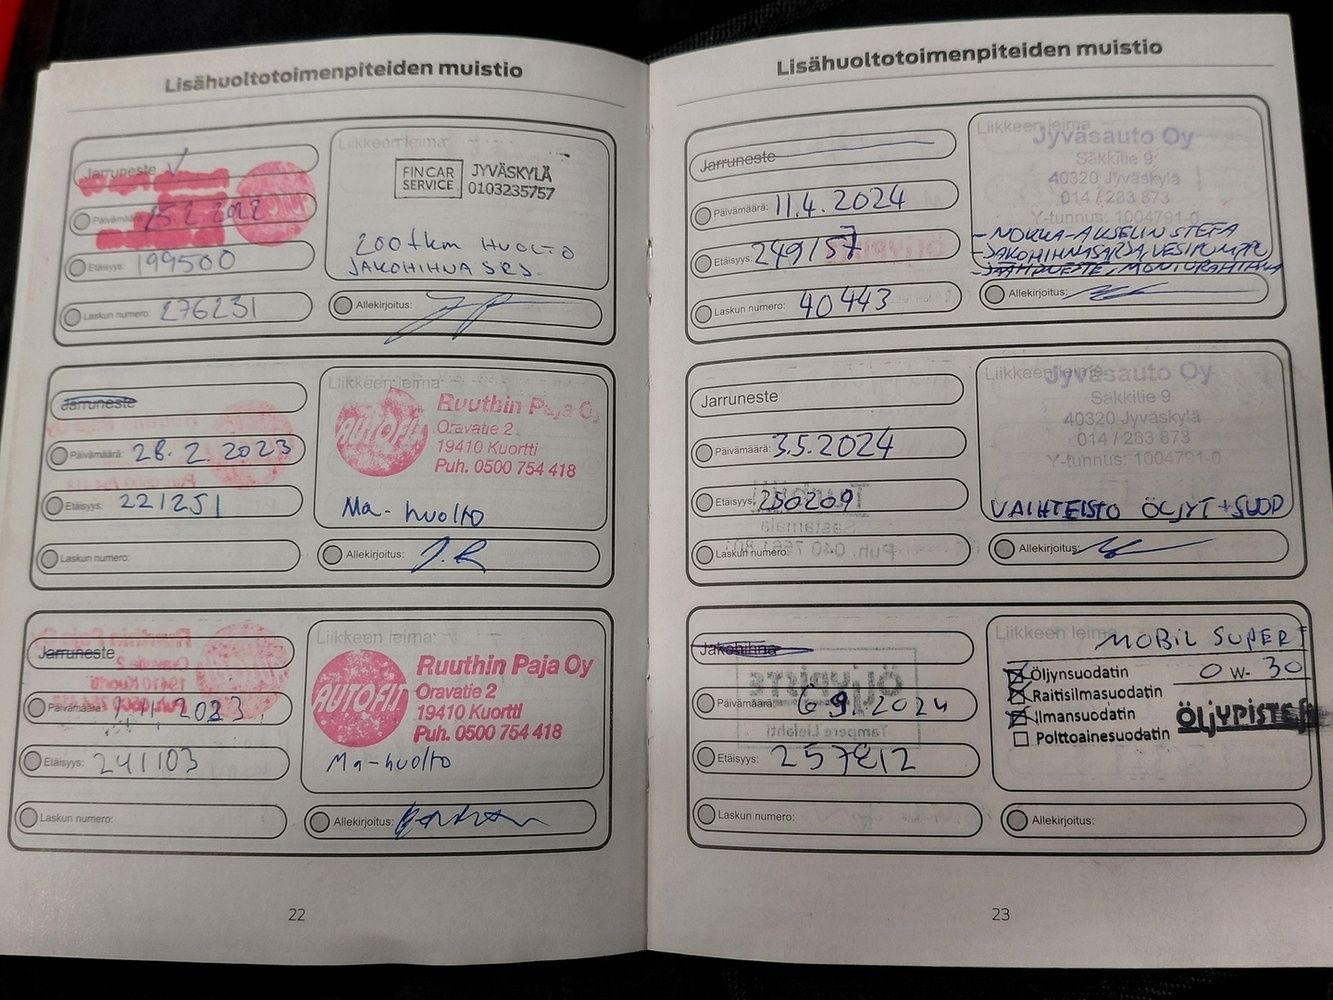 Lisähuoltotoimenpiteiden muistio
Jarruneste
Päivämäärä: 15.2.2022
Etäisyys: 199500
Laskun numero: 276231
Liikkeen leima
FINCAR SERVICE
JYVÄSKYLÄ
0103235757
200tkm HUOLTO
JAKOHIHNA SRJ.
Allekirjoitus:
Jarruneste
Päivämäärä: 28.2.2023
Etäisyys: 221251
Laskun numero:
Liikkeen leima
AUTOFIT
Ruuthin Paja Oy
Oravatie 2
19410 Kuortti
Puh. 0500 754 418
Ma-huolto
Allekirjoitus:
Jarruneste
Päivämäärä: 2023
Etäisyys: 241103
Laskun numero:
Liikkeen leima
AUTOFIT
Ruuthin Paja Oy
Oravatie 2
19410 Kuortti
Puh. 0500 754 418
Ma-huolto
Allekirjoitus:
22
Lisähuoltotoimenpiteiden muistio
Jarruneste
Päivämäärä: 11.4.2024
Etäisyys: 249157
Laskun numero: 40443
Liikkeen leima
Jyväsauto Oy
Säkkitie 9
40320 Jyväskylä
014 / 283 873
Y-tunnus: 1004791-0
- NOKKA-AKSELIN STEFA
- JAKOHIHNASARJA, VESIPUMPPU
- JÄÄHDNESTE, MONIURAHIHNA
Allekirjoitus:
Jarruneste
Päivämäärä: 3.5.2024
Etäisyys: 250209
Laskun numero:
Liikkeen leima
Jyväsauto Oy
Säkkitie 9
40320 Jyväskylä
014 / 283 873
Y-tunnus: 1004791-0
VAIHTEISTO ÖLJYT + SUOD
Allekirjoitus:
Jakohihna
Päivämäärä: 6 9. 2024
Etäisyys: 257812
Laskun numero:
Liikkeen leima
MOBIL SUPER
Öljynsuodatin 0 W- 30
Raitisilmasuodatin
Ilmansuodatin
ÖLJYPISTE
Polttoainesuodatin
Allekirjoitus:
23